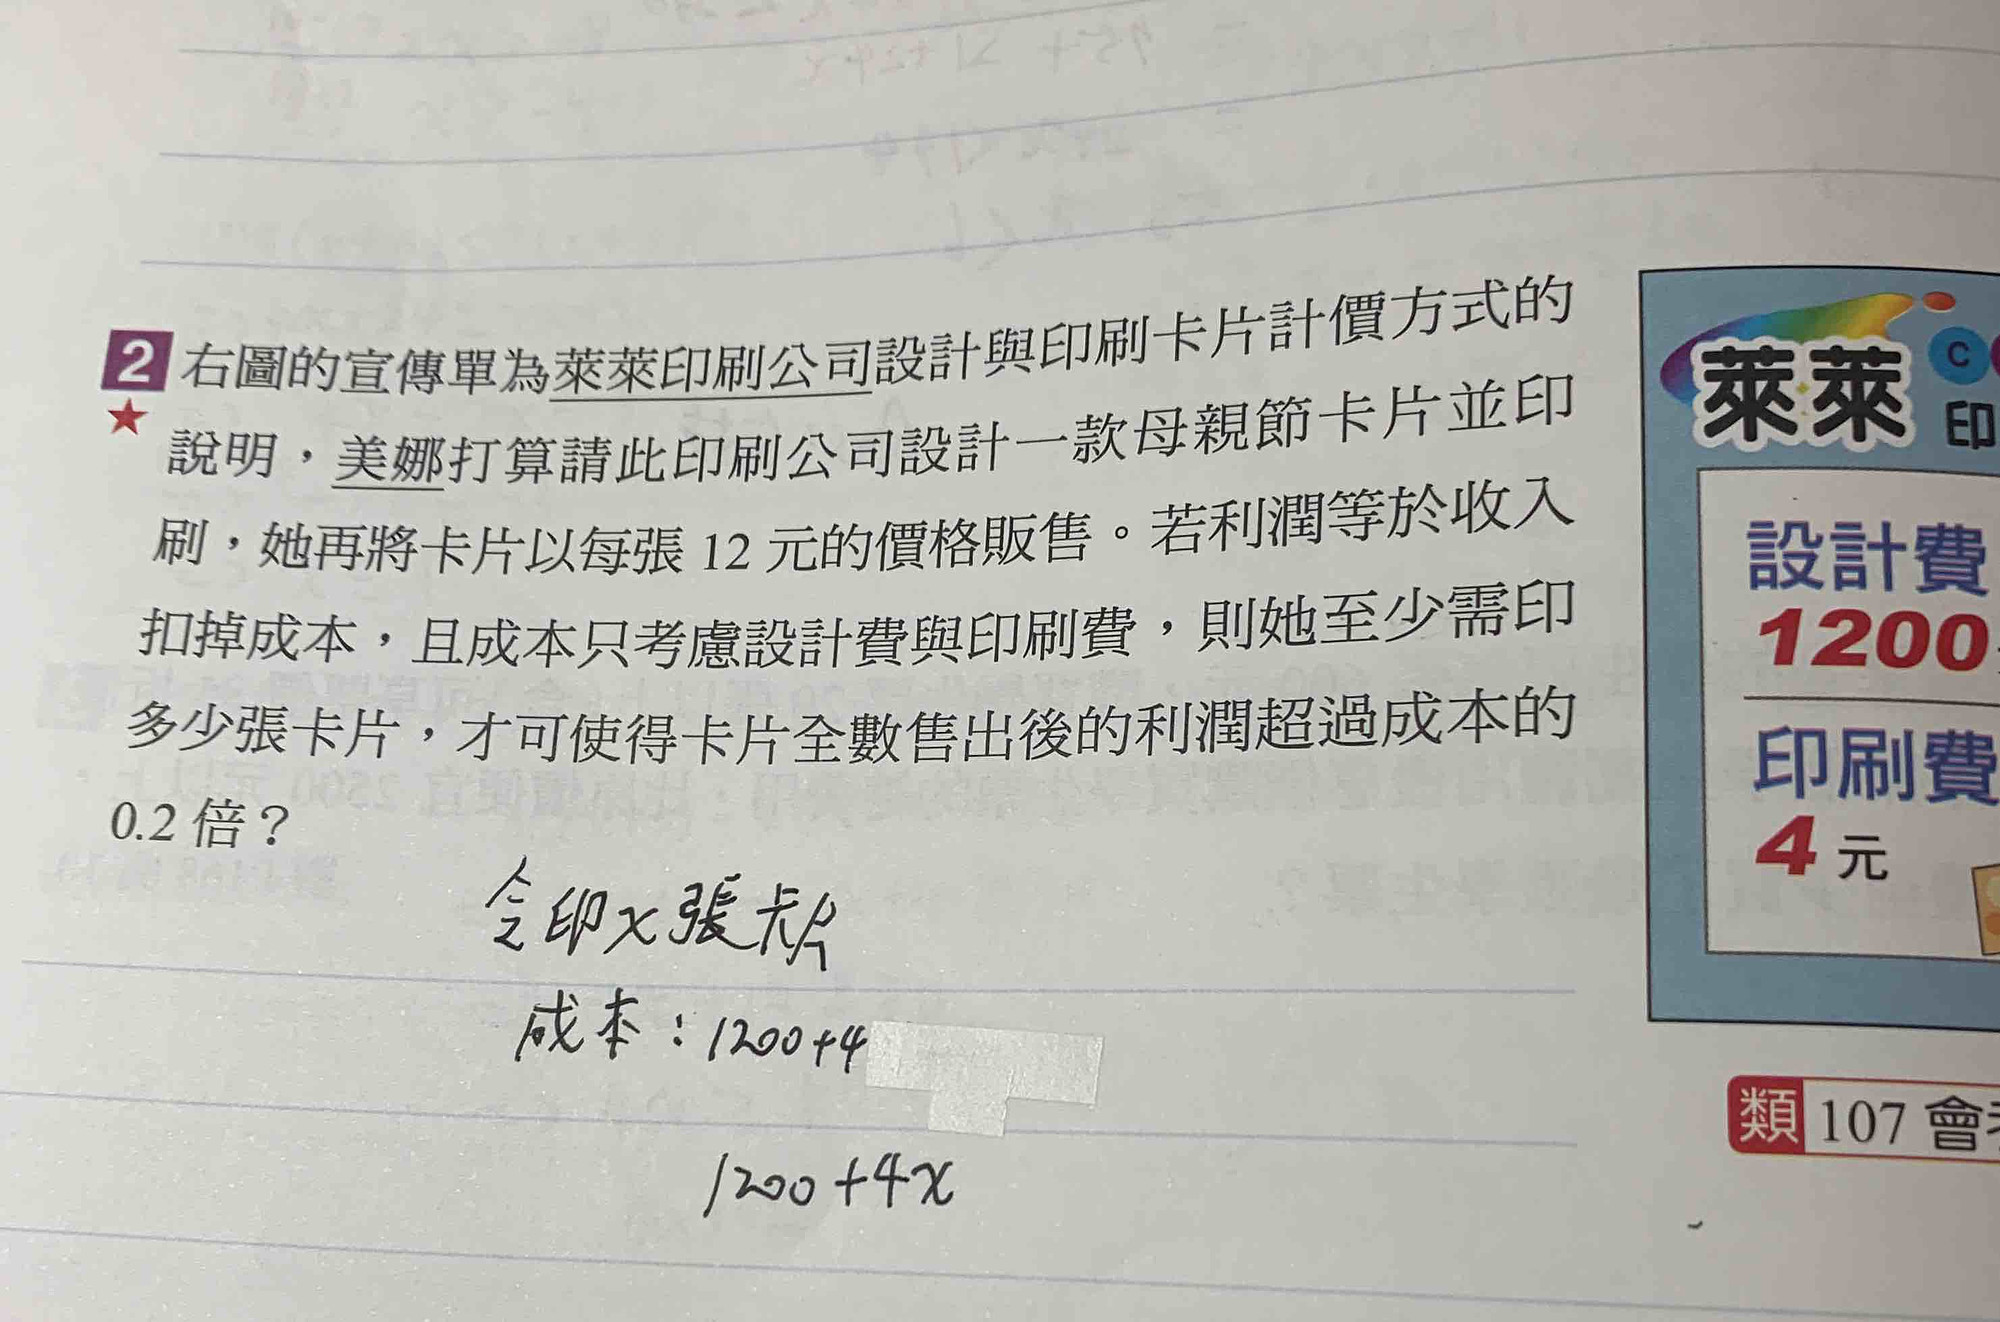 2 右圖的宣傳單為萊萊印刷公司設計與印刷卡片計價方式的
★ 說明，美娜打算請此印刷公司設計一款母親節卡片並印
刷，她再將卡片以每張 12 元的價格販售。若利潤等於收入
扣掉成本，且成本只考慮設計費與印刷費，則她至少需印
多少張卡片，才可使得卡片全數售出後的利潤超過成本的
0.2 倍？
令印x張卡片
成本：1200+4
1200+4x
萊萊 C
印
設計費
1200
印刷費
4 元
類 107 會